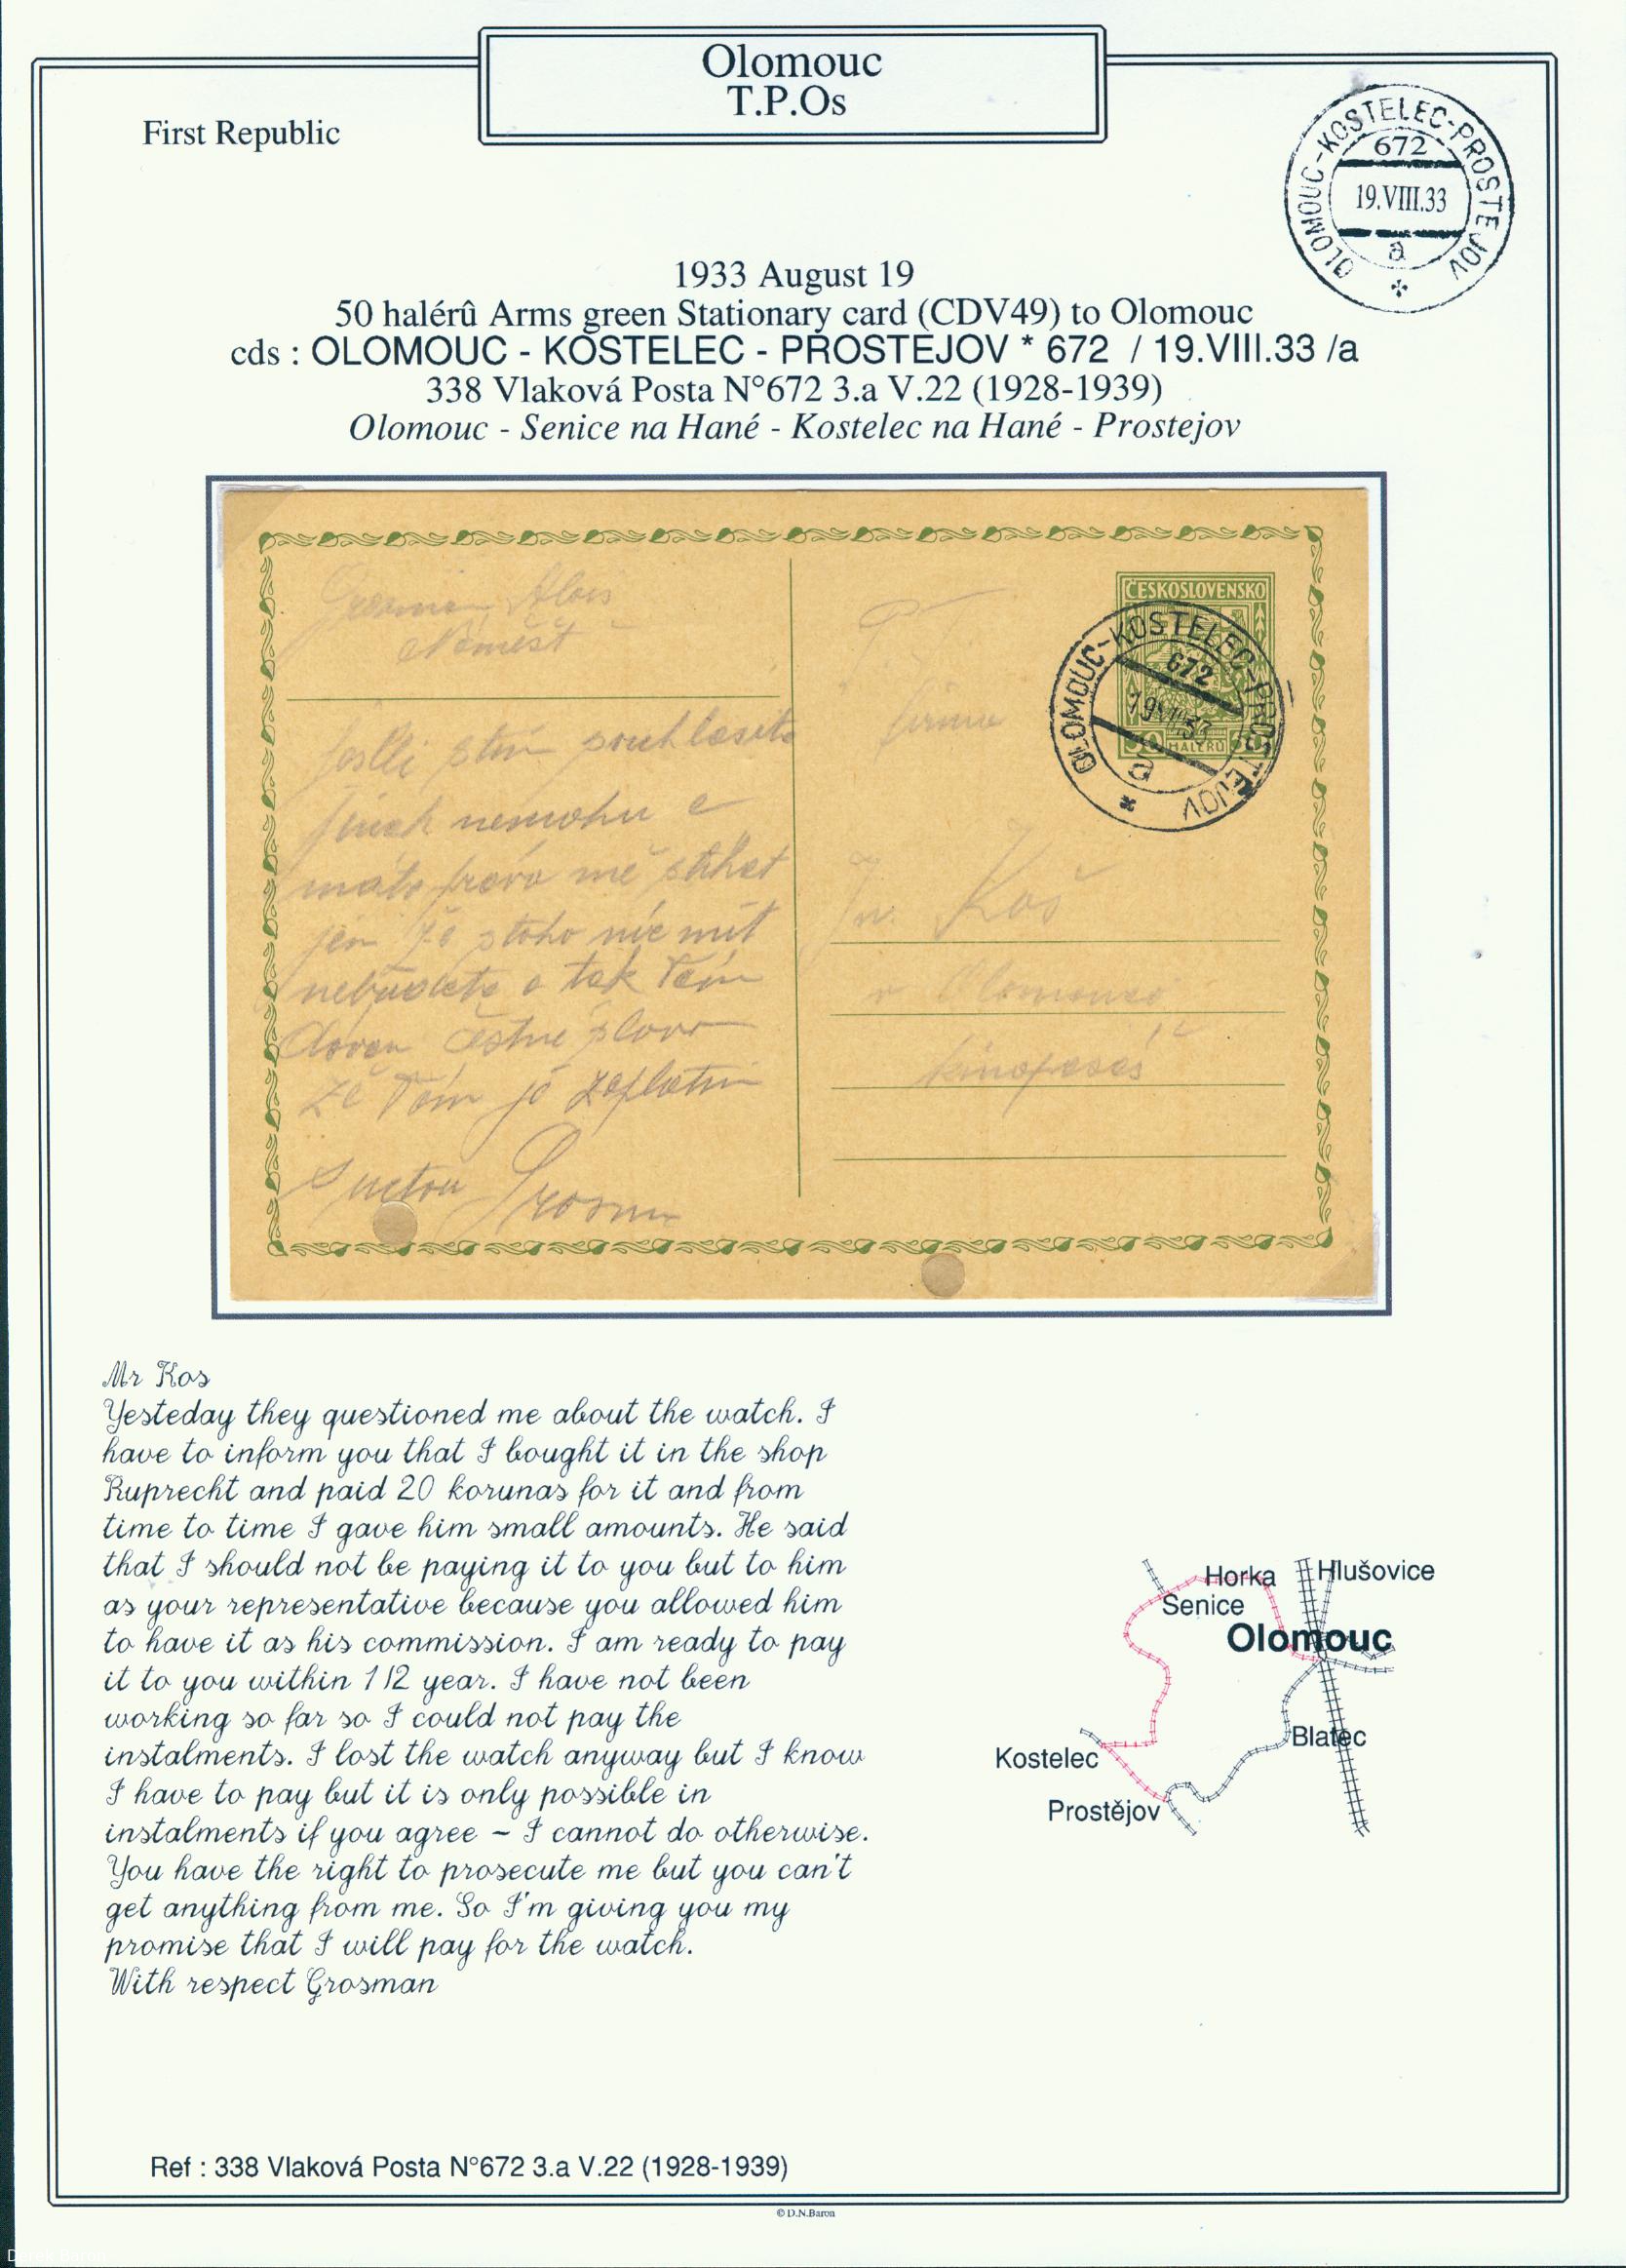 Olomouc
T.P.Os
First Republic
OLOMOUC-KOSTELEC-PROSTEJOV
672
19.VIII.33
a
1933 August 19
50 halérû Arms green Stationary card (CDV49) to Olomouc
cds : OLOMOUC - KOSTELEC - PROSTEJOV * 672 / 19.VIII.33 /a
338 Vlaková Posta N°672 3.a V.22 (1928-1939)
Olomouc - Senice na Hané - Kostelec na Hané - Prostejov
Alois
Náměšť
souhlasíte
jinak nemohu a
máte právo mě stíhat
jen že stoho nic mít
nebudete a tak Vám
čestné slovo
že Vám jo zaplatim
ČESKOSLOVENSKO
50 HALÉŘŮ 50
OLOMOUC-KOSTELEC-PROSTEJOV
672
19.VIII.33
a
Firma
Koš
v Olomouci
Mr Kos
Yesteday they questioned me about the watch. I
have to inform you that I bought it in the shop
Ruprecht and paid 20 korunas for it and from
time to time I gave him small amounts. He said
that I should not be paying it to you but to him
as your representative because you allowed him
to have it as his commission. I am ready to pay
it to you within 1/2 year. I have not been
working so far so I could not pay the
instalments. I lost the watch anyway but I know
I have to pay but it is only possible in
instalments if you agree – I cannot do otherwise.
You have the right to prosecute me but you can't
get anything from me. So I'm giving you my
promise that I will pay for the watch.
With respect Grosman
Horka
Hlušovice
Senice
Olomouc
Blatec
Kostelec
Prostějov
Ref : 338 Vlaková Posta N°672 3.a V.22 (1928-1939)
© D.N.Baron